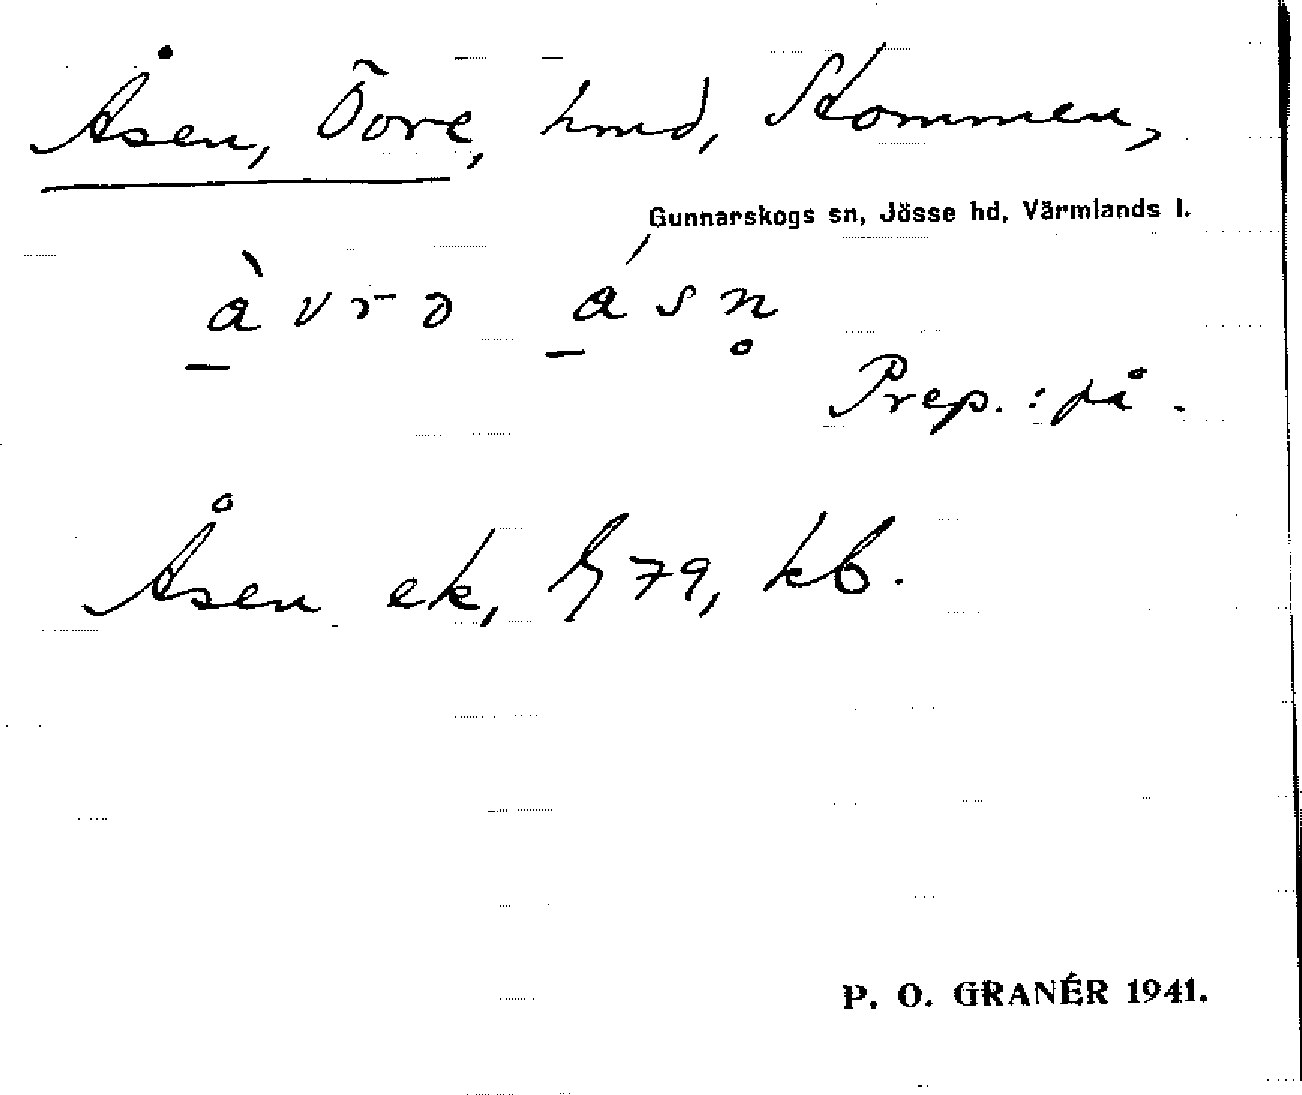 Åsen, Övre, hmd, Skommen,
Gunnarskogs sn, Jösse hd, Värmlands l.
à v r ə á s n̥
Prep. : på.
Åsen ek, 79, kb.
P. O. GRANÉR 1941.